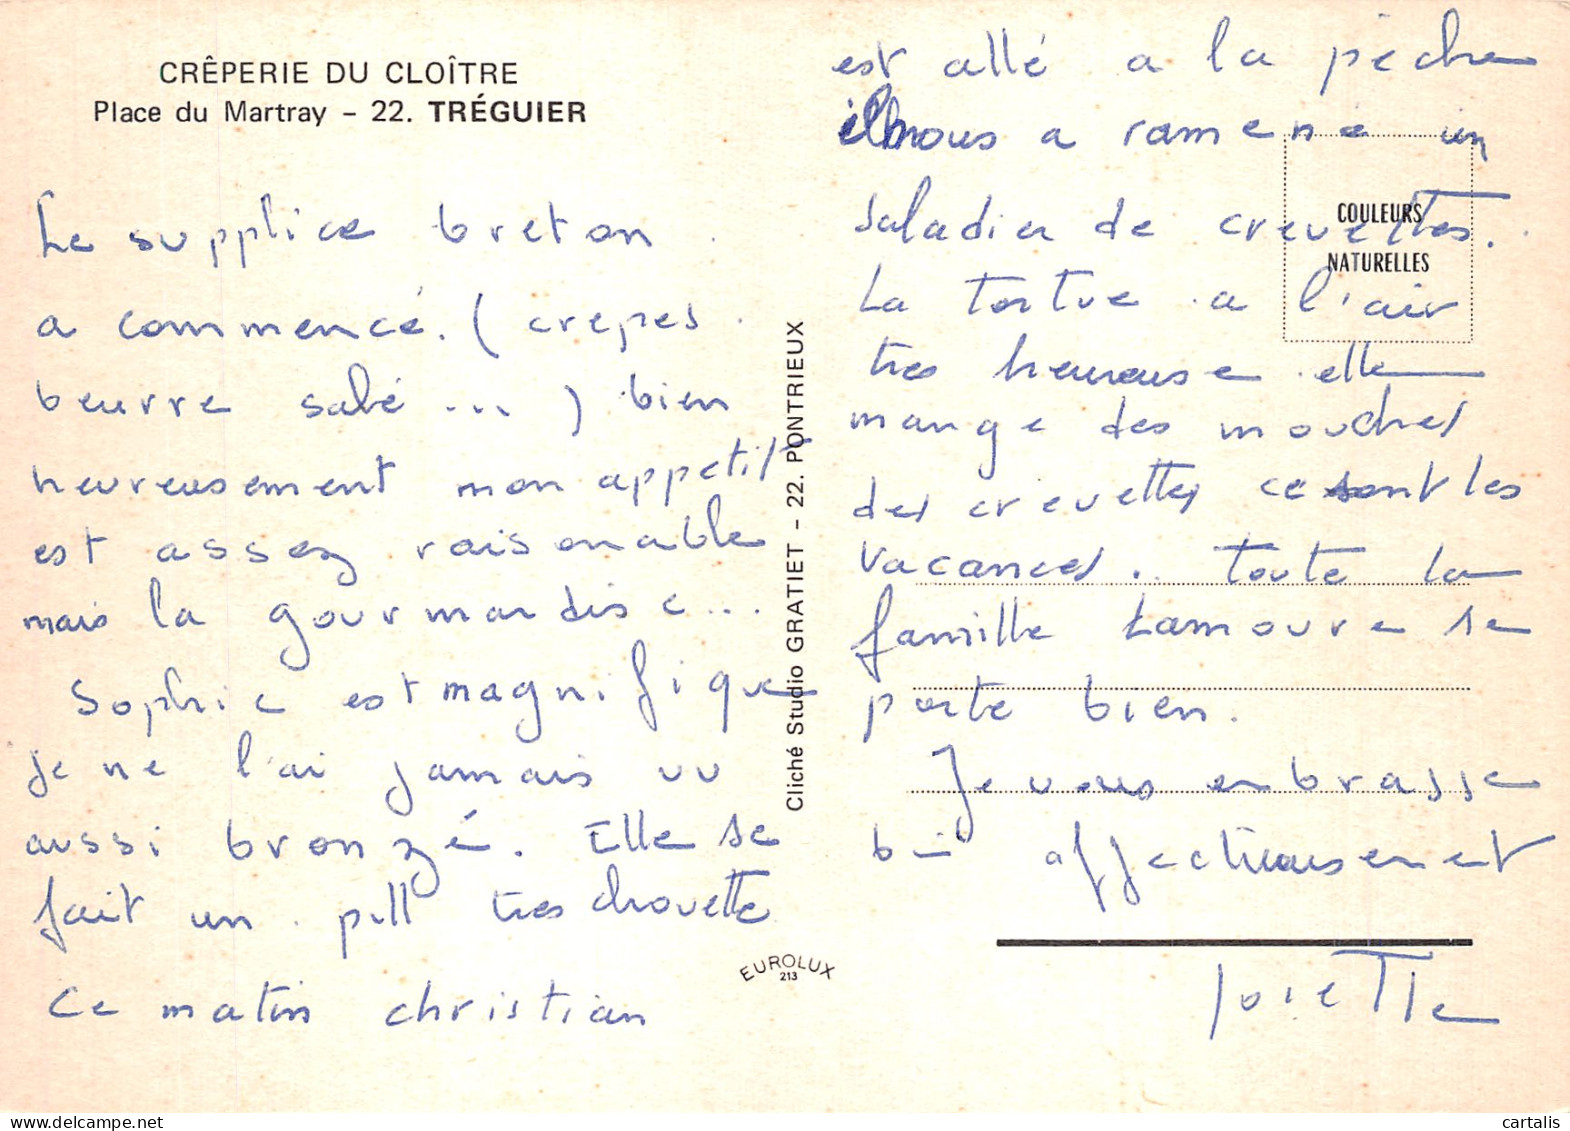 CRÊPERIE DU CLOÎTRE
Place du Martray - 22. TRÉGUIER
Le supplice breton
a commencé. (crepes
beurre salé ...) bien
heureusement mon appetit
est assez raisonable
mais la gourmandise ...
Sophie est magnifique
je ne l'ai jamais vu
aussi bronzé. Elle se
fait un pull tres chouette
Ce matin christian
est allé a la pêche
il nous a ramené un
saladier de crevettes.
La tortue a l'air
tres heureuse elle
mange des mouches
des crevettes ce sont les
vacances. Toute la
famille Lamoure se
porte bien.
Je vous enbrasse
bien affectueusement
Josette
COULEURS
NATURELLES
Cliché Studio GRATIET - 22. PONTRIEUX
EUROLUX
213
cartalis